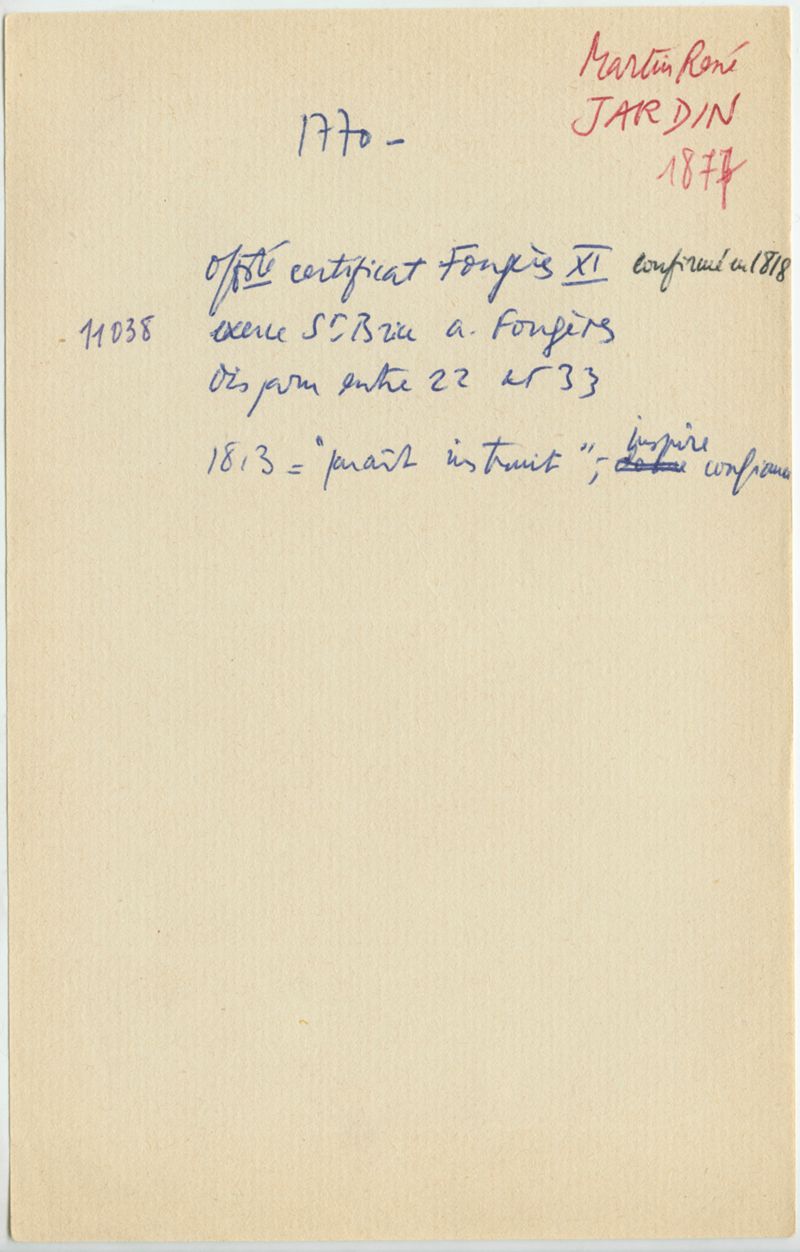 Martin René
JARDIN
1877
1770 -
Offté certificat Fougères XI confirmé en 1818
11038 exerce St. Brice a. Fougères
disparu entre 22 et 33
1813 = "paraît instruit" ; inspire confiance